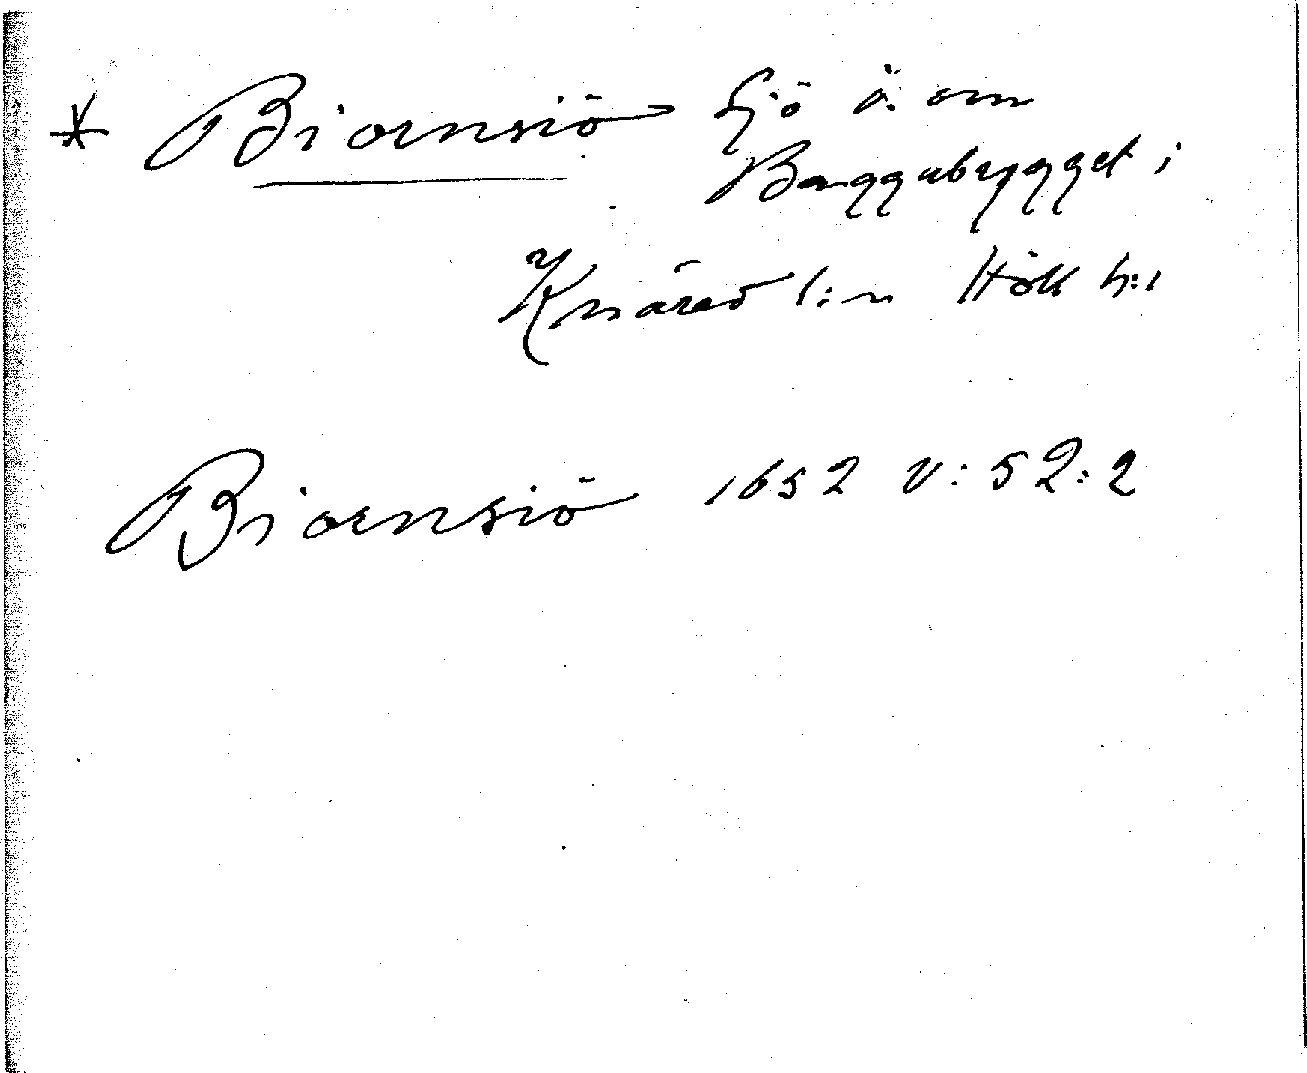 * Biörnsiö Sjö ö. om
Baggabygget i
Knäred s:n Hök h:d
Biörnsiö 1652 V: 52:2